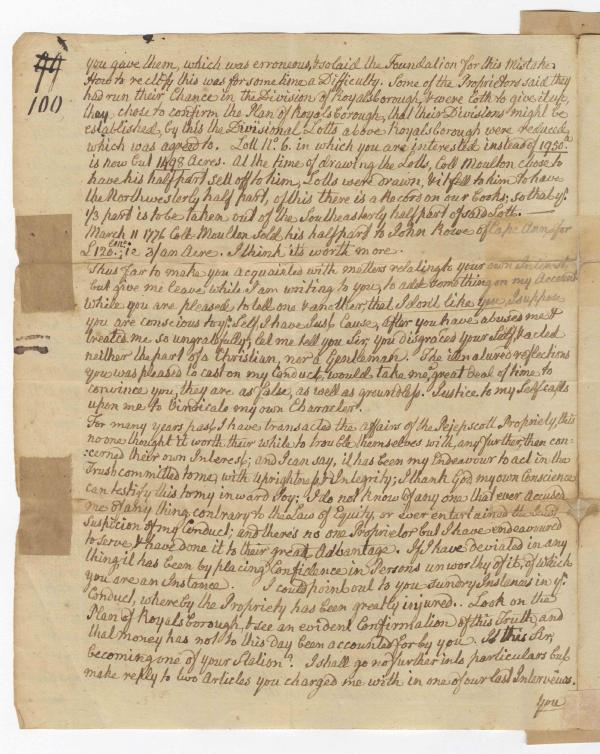 99
100
you gave them, which was erroneous, & so laid the Foundation for this Mistake
How to rectify this was for some time a Difficulty. Some of the Proprietors said they
had run their Chance in the Division of Royalsborough, & were Loth to give it up,
they chose to confirm the Plan of Royalsborough, that their Divisions might be
established, by this the Divisional Lotts above Royalsborough were reduced,
which was agreed to. Lott No. 6. in which you are interested instead of 1950a
is now but 1498 Acres. At the time of drawing the Lotts, Coll Moulton chose to
have his half part sett off to him, Lotts were drawn, & it fell to him to have
the Northwesterly half part, of this there is a Record on our Books, so that yr
1/3 part is to be taken out of the Southeasterly half part of said Lott.
March 11 1776 Colo Moulton Sold his half part to John Rowe of Cape Ann for
£ 120 ie 3/ an Acre. I think its worth more.
Thus far to make you acquainted with matters relating to your own Interest,
but give me leave while I am writing to you, to add something on my Account
while you are pleased to tell one & another, that I don't like you, I suppose
you are conscious to yr Self I have Just Cause, after you have abused me &
treated me so ungratefully, let me tell you Sir, you disgraced your Self, & acted
neither the part of a Christian, nor a Gentleman. The ill natured reflections
you was pleased to cast on my Conduct, would take me no great deal of time to
convince you, they are as false, as well as groundless. Justice to my Self calls
upon me to Vindicate my own Character.
For many years past I have transacted the affairs of the Pejepscott Propriety, this
no one thought it worth their while to trouble themselves with, any further, then con-
cerned their own Interest; and I can say, it has been my Endeavour to act in the
Trust committed to me, with uprightness & Integrity; I thank God my own Conscience
can testify this to my inward Joy: I do not know of any one that ever accused
me of any thing contrary to the Law of Equity, or ever entertained the least
Suspition of my Conduct; and there's no one Proprietor but I have endeavoured
to serve & have done it to their great Advantage. If I have deviated in any
thing it has been by placing Confidence in Persons unworthy of it, of which
you are an Instance. I could point out to you Sundry Instances in yr
Conduct, whereby the Propriety has been greatly injured. Look on the
Plan of Royalsborough, & see an evident Confirmation of this Truth, and
that money has not to this day been accounted for by you. Is this Sir
becoming one of your Station? I shall go no further into particulars but
make reply to two Articles you charged me with in one of our last Interviews.
You